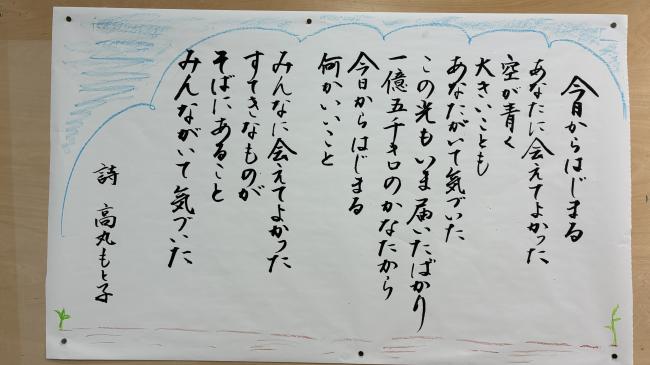 今日からはじまる
あなたに会えてよかった
空が青く
大きいことも
あなたがいて気づいた
この光もいま届いたばかり
一億五千キロのかなたから
今日からはじまる
何かいいこと
みんなに会えてよかった
すてきなものが
そばにあること
みんながいて気づいた
詩 高丸もと子